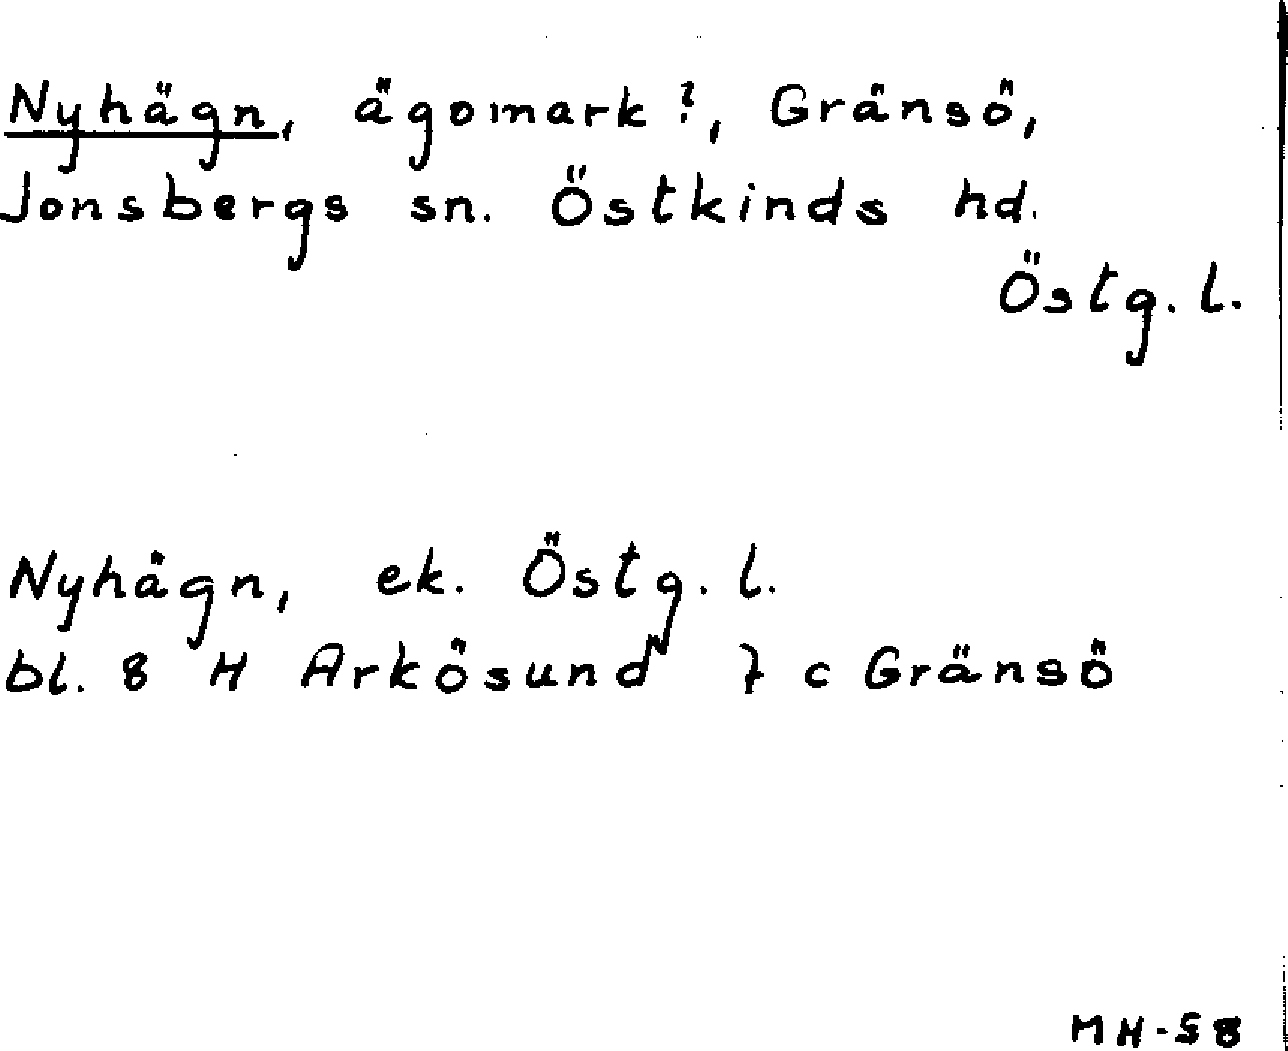 Nyhägn, ägomark?, Gränsö,
Jonsbergs sn. Östkinds hd.
Östg. l.
Nyhägn, ek. Östg. l.
bl. 8 H Arkösund 7 c Gränsö
MH-58